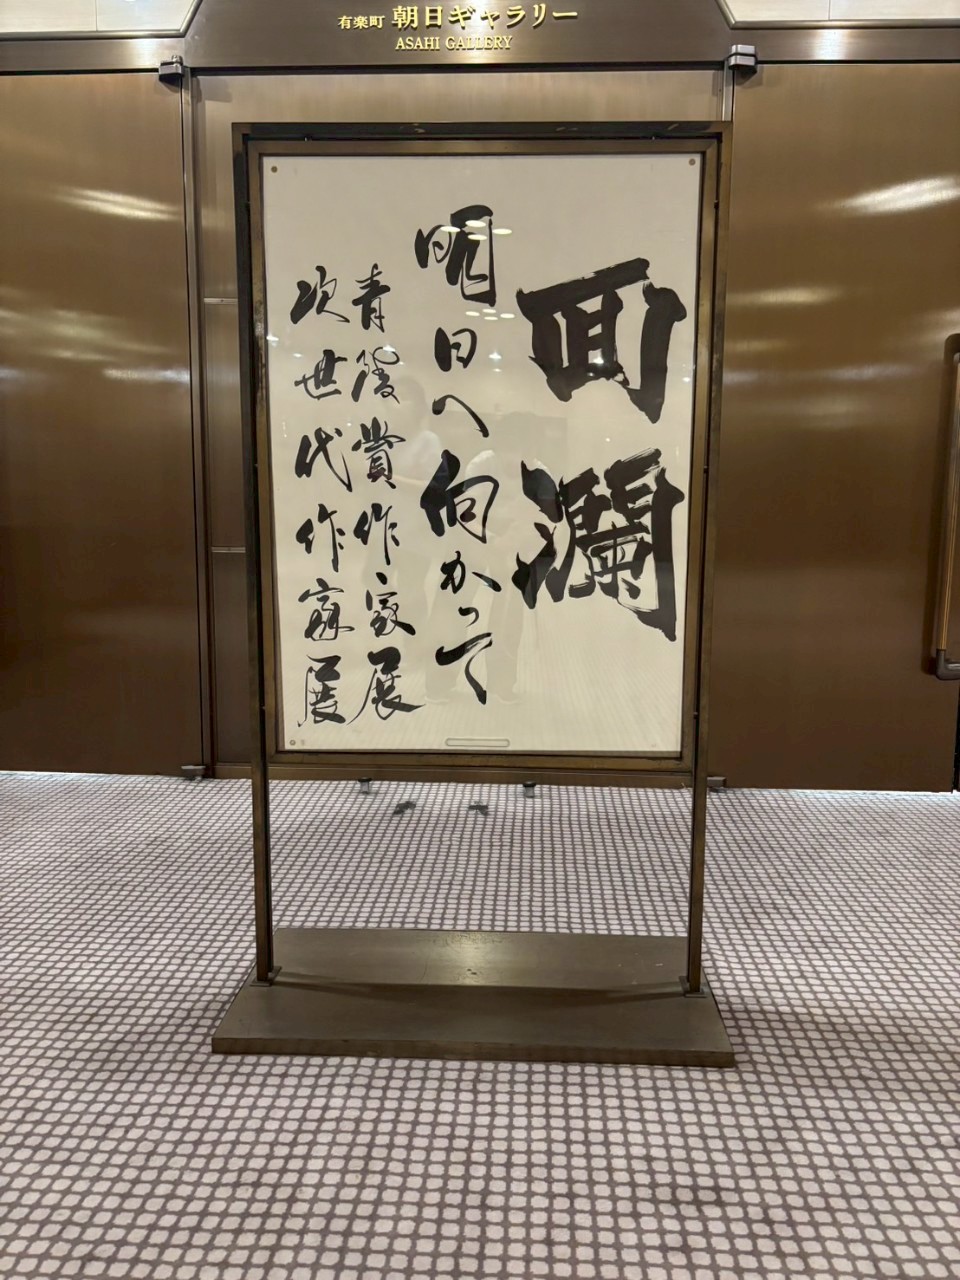 有楽町 朝日ギャラリー
ASAHI GALLERY
回瀾
明日へ向かって
青賞作家展
次世代作家展